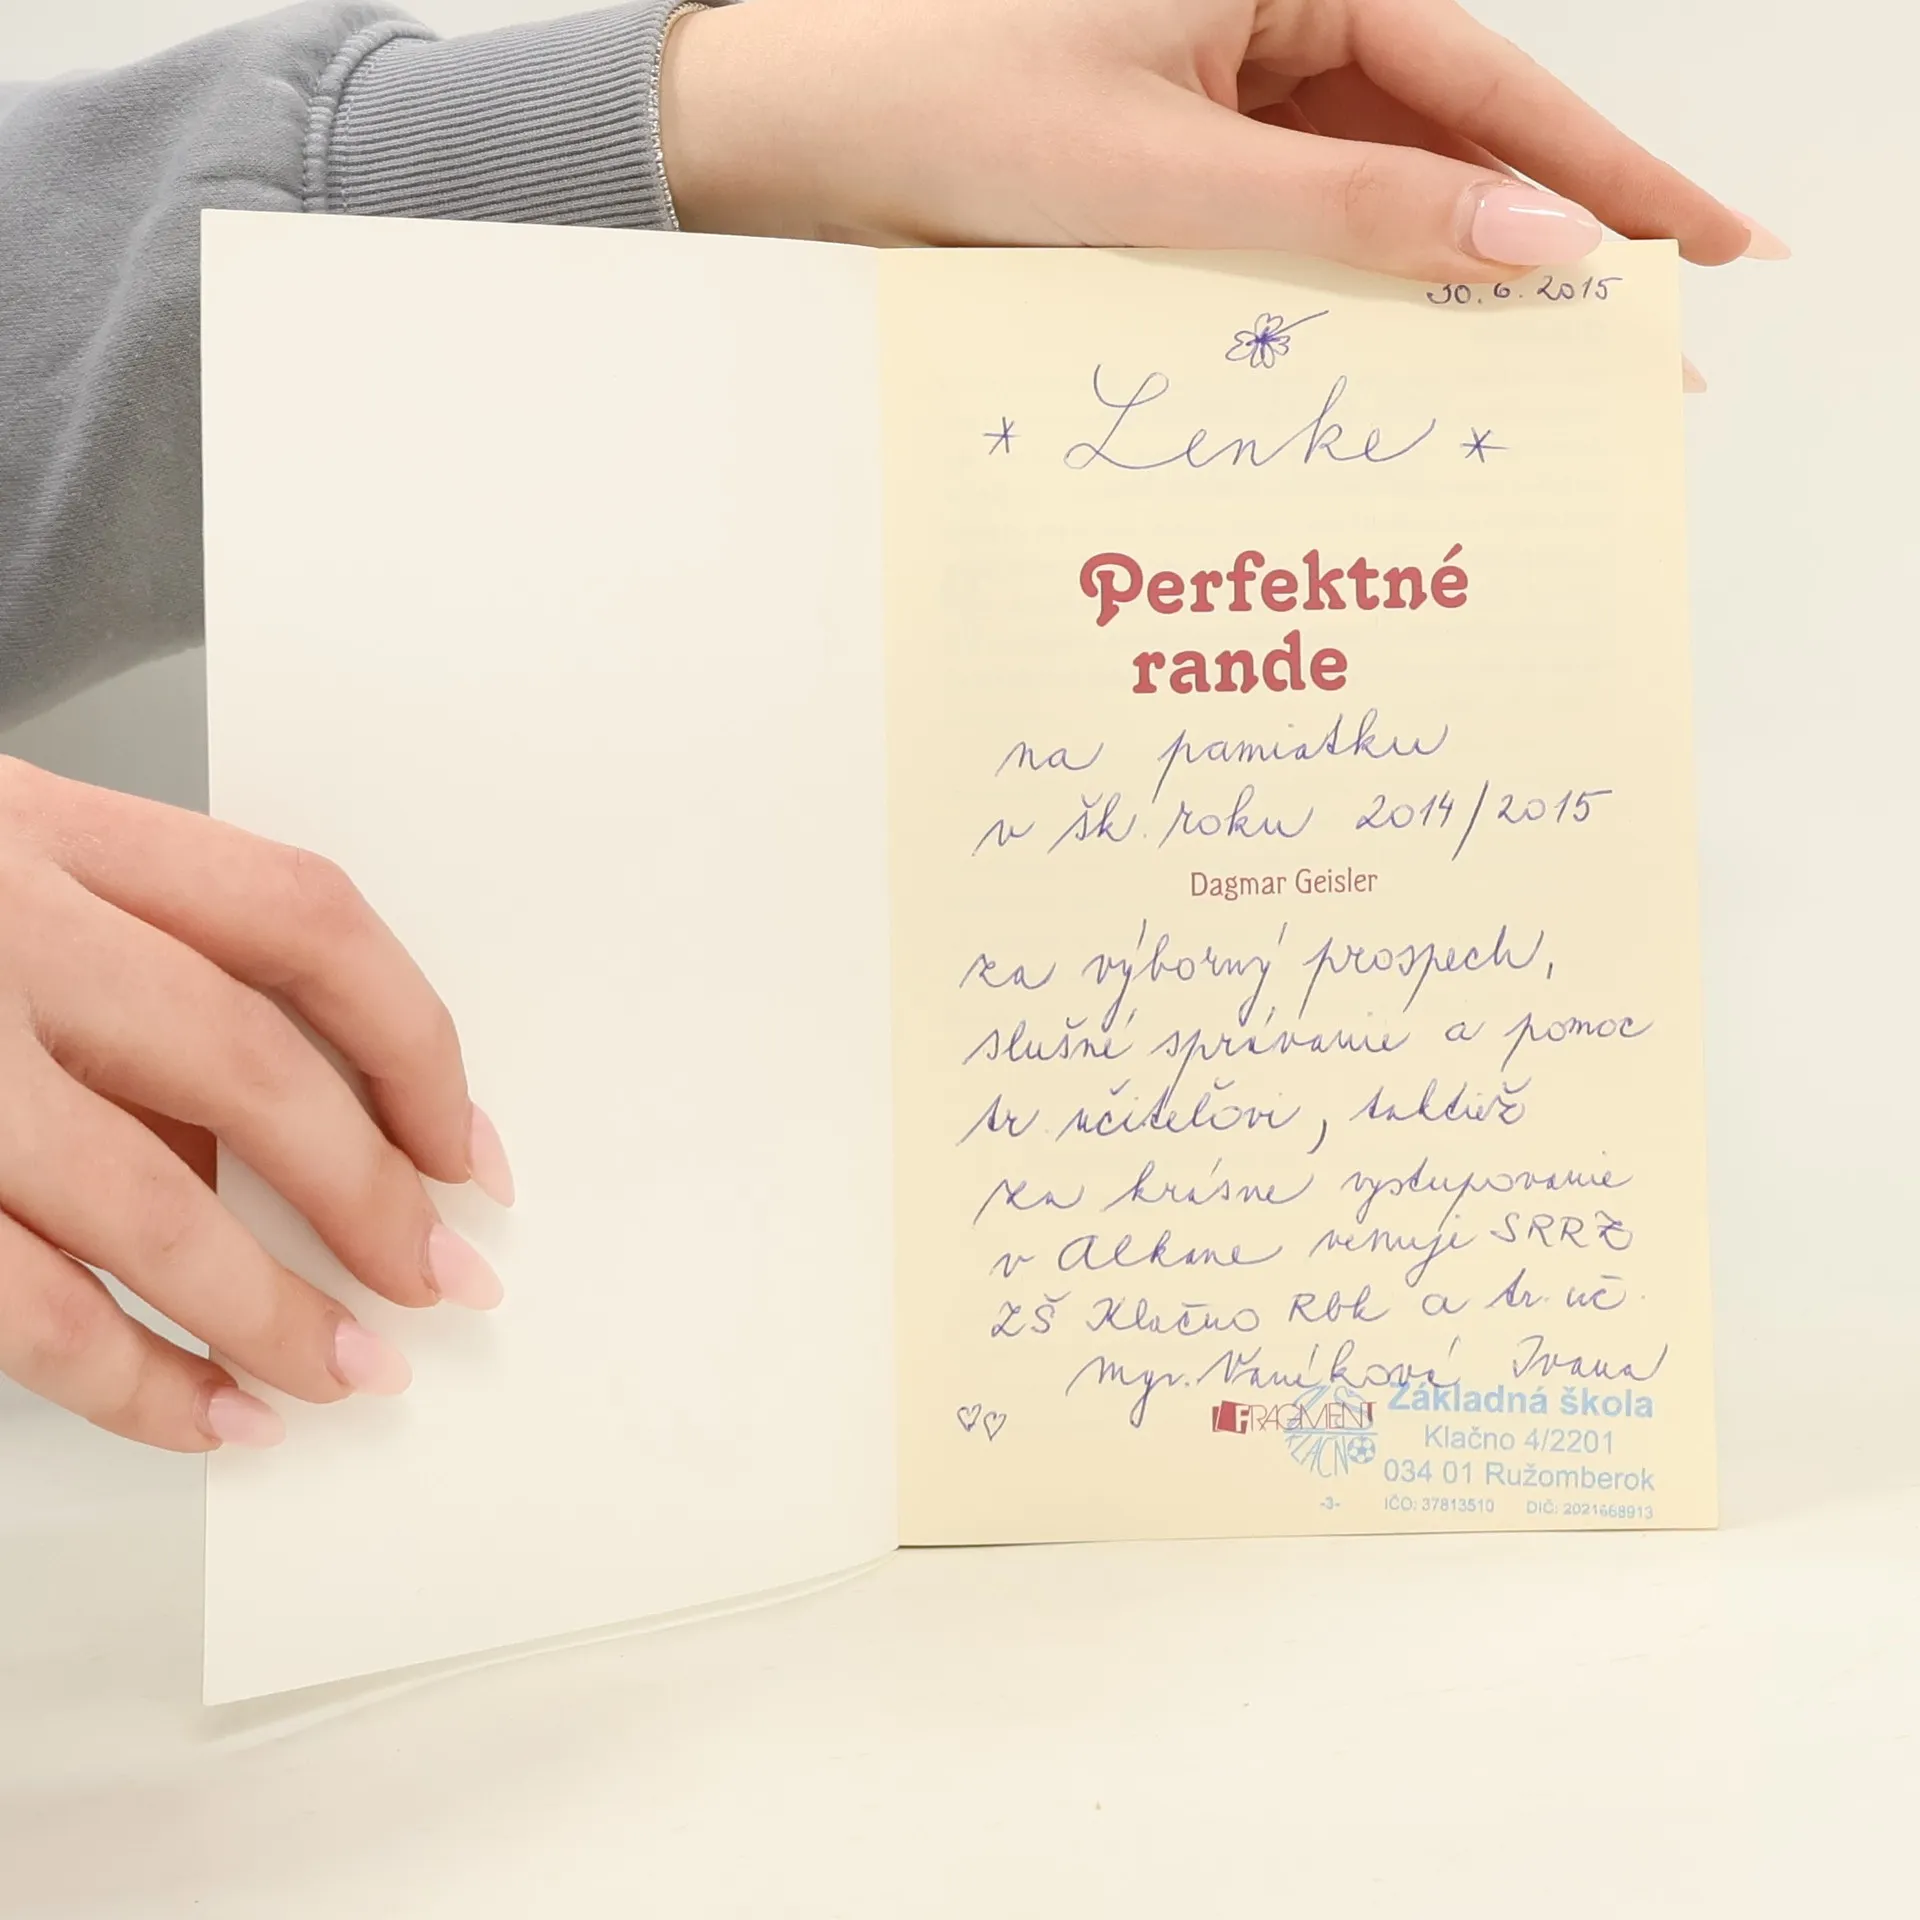 30. 6. 2015
* Lenke *
Perfektné
rande
na pamiatku
v šk. roku 2014/2015
Dagmar Geisler
za výborný prospech,
slušné správanie a pomoc
tr. učiteľovi, taktiež
za krásne vystupovanie
v Alkane venuje SRRZ
ZŠ Klačno Rbk a tr. uč.
Mgr. Vaníková Ivana
FRAGMENT
KLAČNO
Základná škola
Klačno 4/2201
034 01 Ružomberok
-3- IČO: 37813510 DIČ: 2021668913